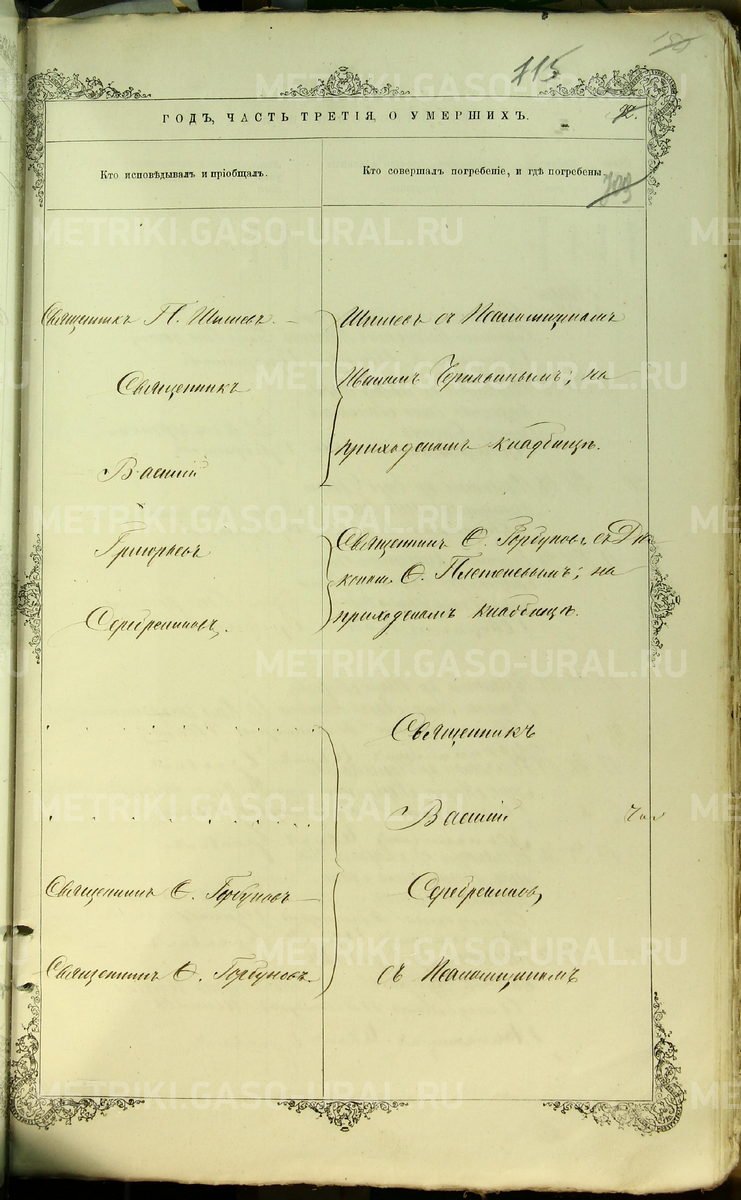 150
115
ГОДЪ, ЧАСТЬ ТРЕТІЯ, О УМЕРШИХЪ.
Кто исповѣдывалъ и пріобщалъ.
Кто совершалъ погребеніе, и гдѣ погребены
703
Священникъ П. Шишевъ.
Священникъ
Василій
Григорьевъ
Серебрениковъ.
Священникъ Ѳ. Горбуновъ
Священникъ Ѳ. Горбуновъ.
Шишевъ съ Псаломщикомъ
Иваномъ на
приходскомъ кладбищѣ.
Священникъ Ѳ. Горбуновъ съ Діа
кономъ Ѳ. Плетеневымъ; на
приходскомъ кладбищѣ.
Священникъ
Василій
Серебрениковъ
съ Псаломщикомъ
METRIKI.GASO-URAL.RU